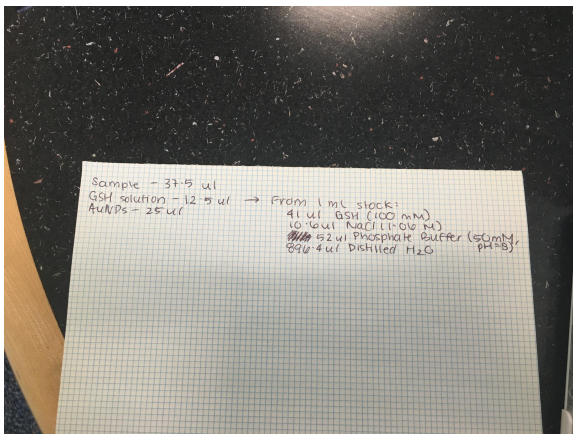 Sample - 37.5 ul
GSH solution - 12.5 ul → From 1 mL stock:
AuNPs - 25 ul
41 ul GSH (100 mM)
10.6ul NaCl (1.06 M)
52 ul Phosphate Buffer (50mM, pH=8)
896.4ul Distilled H2O